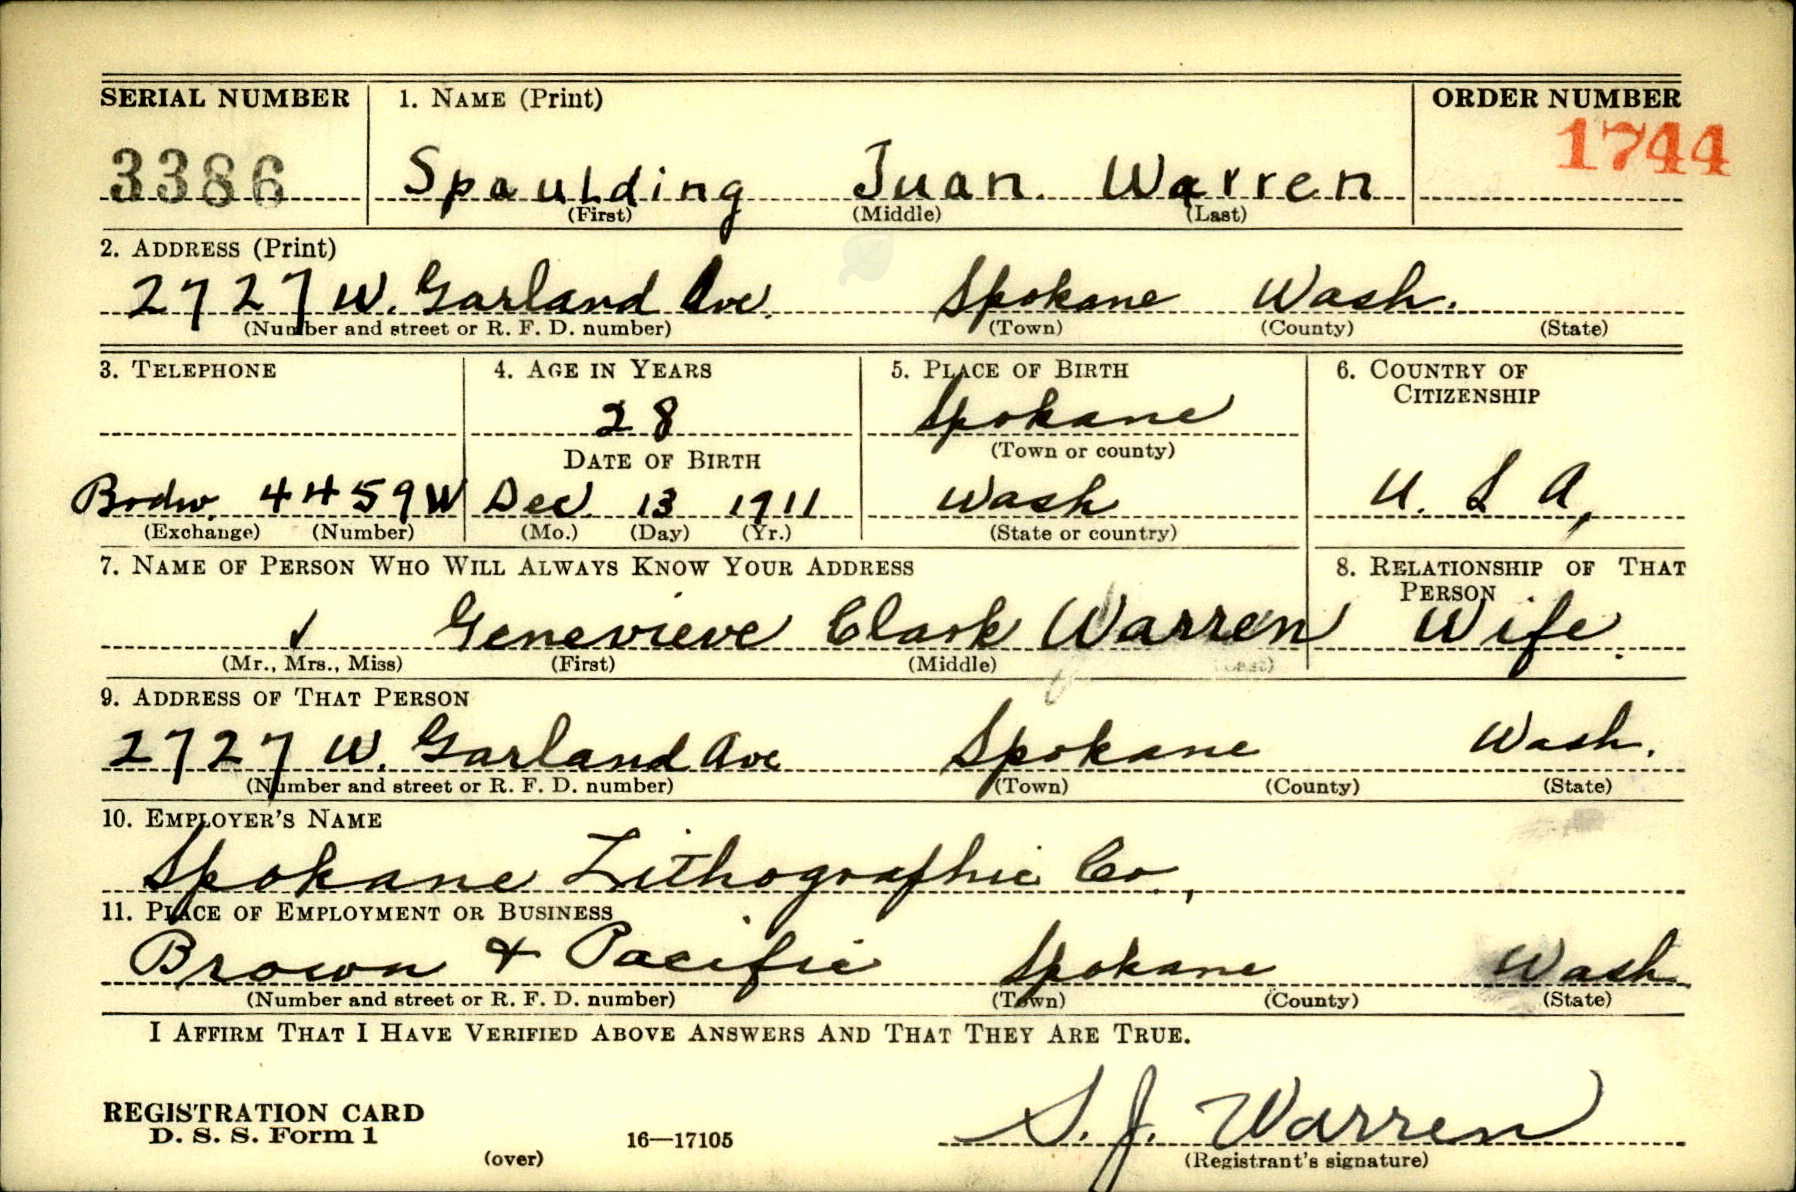 SERIAL NUMBER 1. NAME (Print) ORDER NUMBER
3386 Spaulding Juan Warren 1744
(First) (Middle) (Last)
2. ADDRESS (Print)
2727 W. Garland Ave. Spokane Wash.
(Number and street or R. F. D. number) (Town) (County) (State)
3. TELEPHONE 4. AGE IN YEARS 5. PLACE OF BIRTH 6. COUNTRY OF CITIZENSHIP
28 Spokane
DATE OF BIRTH (Town or county)
Brdw. 4459W Dec. 13 1911 Wash U. S A,
(Exchange) (Number) (Mo.) (Day) (Yr.) (State or country)
7. NAME OF PERSON WHO WILL ALWAYS KNOW YOUR ADDRESS 8. RELATIONSHIP OF THAT PERSON
Genevieve Clark Warren Wife.
(Mr., Mrs., Miss) (First) (Middle) (Last)
9. ADDRESS OF THAT PERSON
2727 W. Garland Ave Spokane Wash.
(Number and street or R. F. D. number) (Town) (County) (State)
10. EMPLOYER'S NAME
Spokane Lithographic Co.,
11. PLACE OF EMPLOYMENT OR BUSINESS
Brown & Pacific Spokane Wash.
(Number and street or R. F. D. number) (Town) (County) (State)
I AFFIRM THAT I HAVE VERIFIED ABOVE ANSWERS AND THAT THEY ARE TRUE.
REGISTRATION CARD
D. S. S. Form 1 16—17105 S. J. Warren
(over) (Registrant's signature)